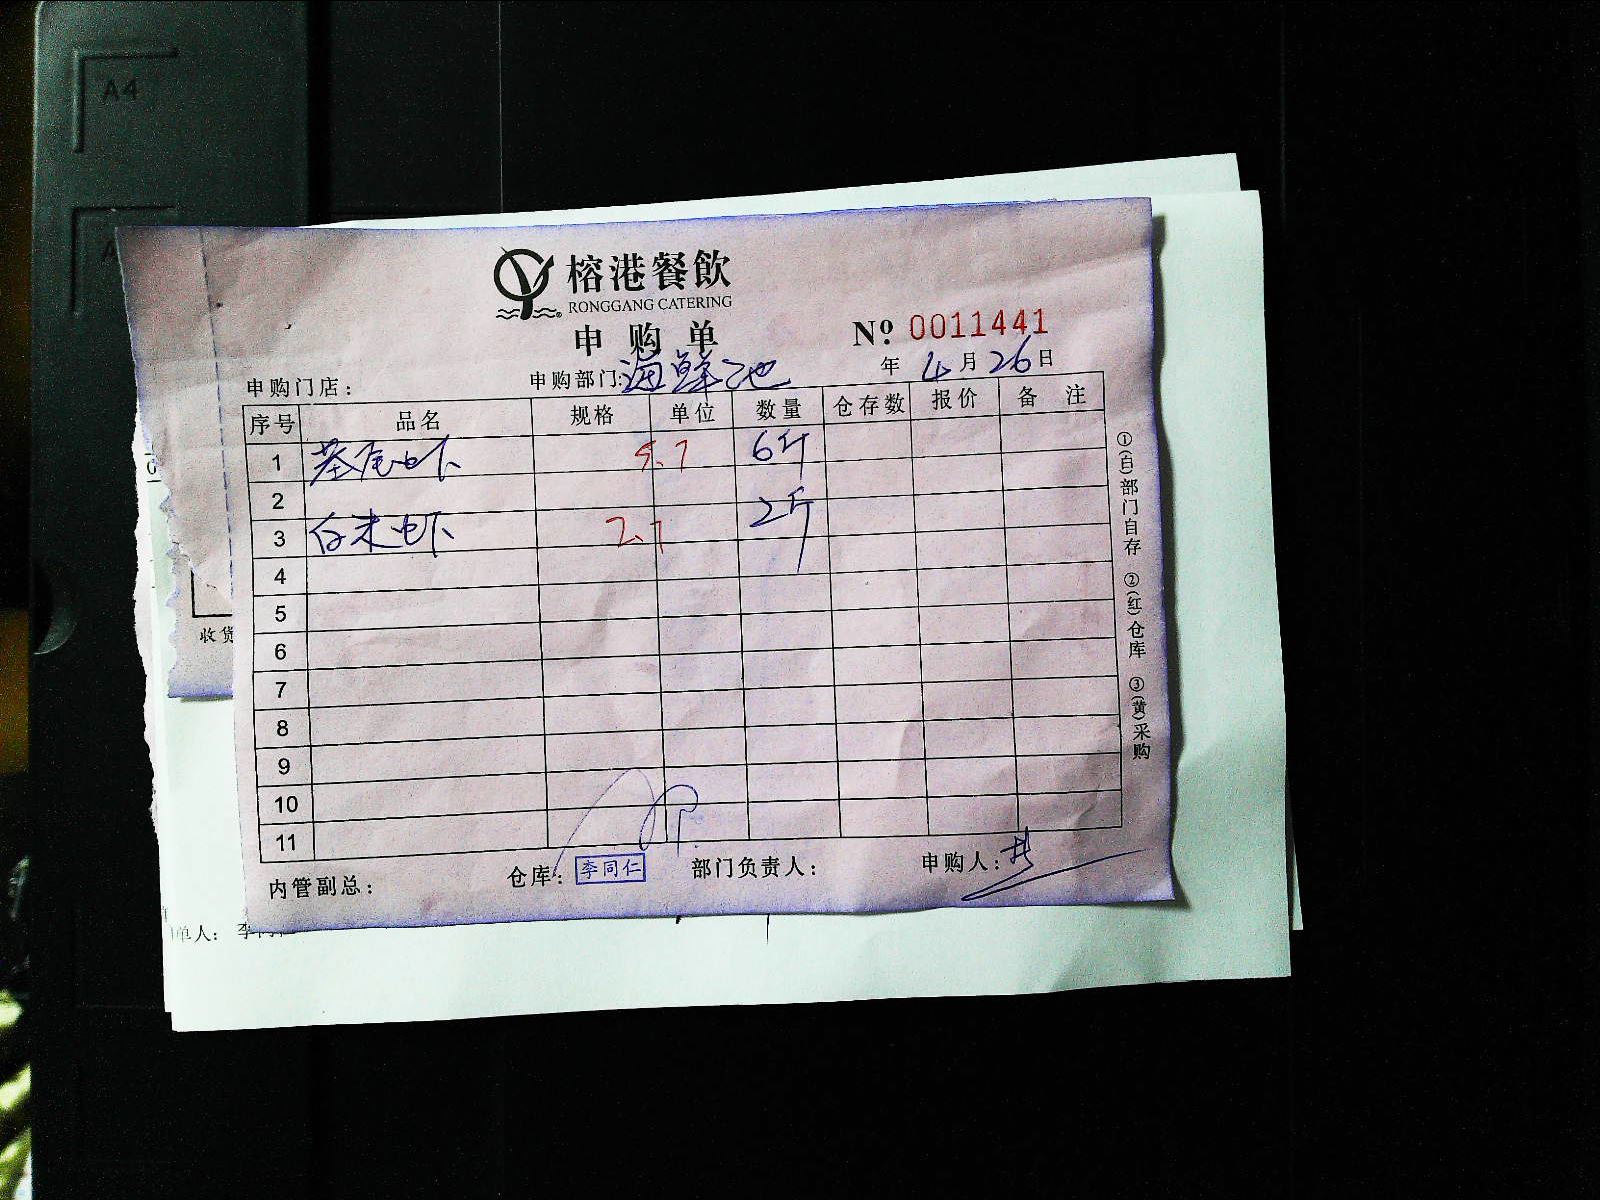 A4
榕港餐飲
RONGGANG CATERING
申购单
№ 0011441
申购门店：
申购部门：海鲜池
年 4月26日
序号 品名 规格 单位 数量 仓存数 报价 备注
1 基尾虾 5.7 6斤
2
3 白米虾 2.7 2斤
4
5
6
7
8
9
10
11
内管副总：
仓库： 李同仁
部门负责人：
申购人：
①(白)部门自存 ②(红)仓库 ③(黄)采购
收货
单人：